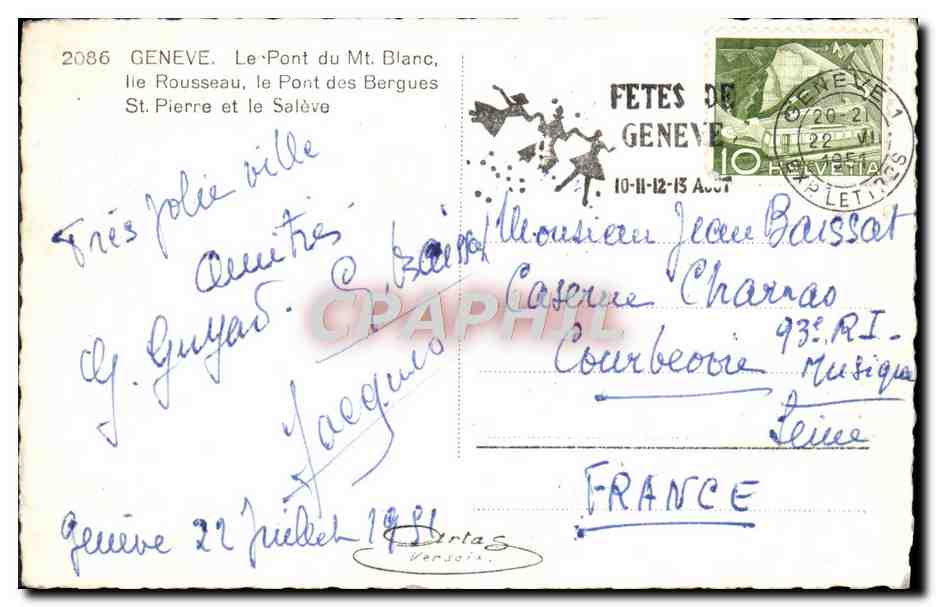 2086 GENEVE. Le Pont du Mt. Blanc,
Ile Rousseau, le Pont des Bergues
St. Pierre et le Salève
FETES DE
GENEVE
10-11-12-13 AOUT
GENEVE 1
20-21
22 VII
1951
EXP. LETTRES
10 HELVETIA
Très jolie ville
Amitiés
G. Guyad. G. Baissat
Jacques
Genève 22 Juillet 1951
Monsieur Jean Baissat
Caserne Charras
93e R I -
Courbevoie Musique
Seine
FRANCE
CPARPHIL
Artas
Versoix.